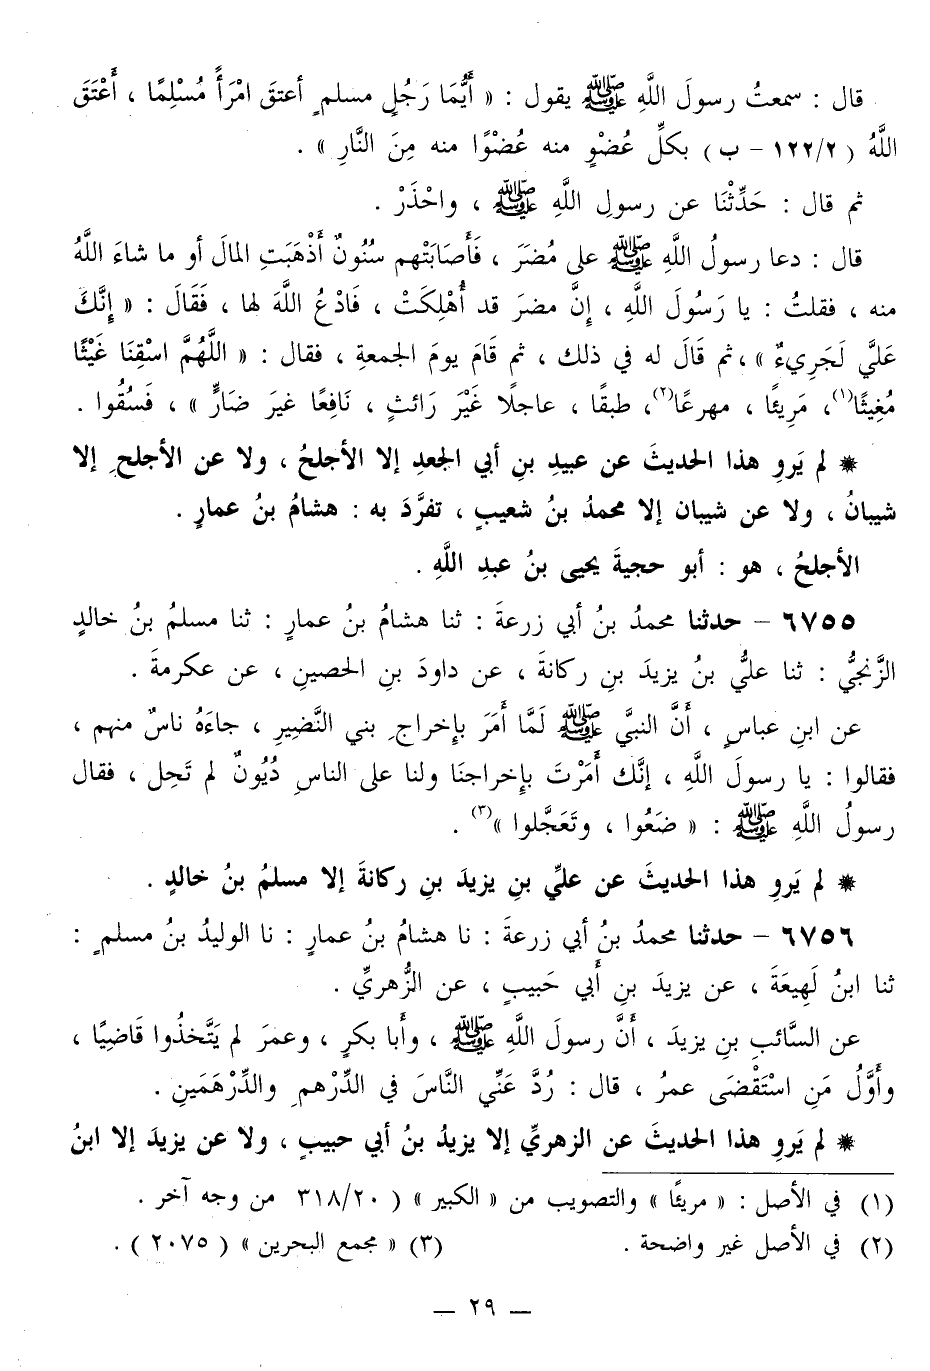 قال : سمعتُ رسولَ اللَّهِ ﷺ يقول : « أَيُّمَا رَجُلٍ مسلمٍ أعتقَ امْرَأً مُسْلِمًا ، أَعْتَقَ
اللَّهُ ( ١٢٢/٢ - ب ) بكلِّ عُضْوٍ منه عُضْوًا منه مِنَ النَّارِ » .
ثم قال : حَدِّثْنَا عن رسولِ اللَّهِ ﷺ ، واحْذَرْ .
قال : دعا رسولُ اللَّهِ ﷺ على مُضَرَ ، فَأَصَابَتْهم سُنُونٌ أَذْهَبَتِ المالَ أو ما شاءَ اللَّهُ
منه ، فقلتُ : يا رَسُولَ اللَّهِ ، إِنَّ مضرَ قد أُهْلِكَتْ ، فَادْعُ اللَّهَ لها ، فَقَالَ : « إِنَّكَ
عَلَيَّ لَجَرِيءٌ » ، ثم قَالَ له في ذلك ، ثم قَامَ يومَ الجمعةِ ، فقال : « اللَّهُمَّ اسْقِنَا غَيْثًا
مُغِيثًا(١)، مَرِيئًا ، مهرعًا(٢)، طبقًا ، عاجلًا غَيْرَ رَائثٍ ، نَافِعًا غيرَ ضَارٍّ » ، فَسُقُوا .
* لم يَروِ هذا الحديثَ عن عبيدِ بنِ أبي الجعدِ إلا الأجلحُ ، ولا عن الأجلحِ إلا
شيبانُ ، ولا عن شيبان إلا محمدُ بنُ شعيبٍ ، تفرَّدَ به : هشامُ بنُ عمارٍ .
الأجلحُ ، هو : أبو حجيةَ يحيى بنُ عبدِ اللَّهِ .
٦٧٥٥ - حدثنا محمدُ بنُ أبي زرعةَ : ثنا هشامُ بنُ عمارٍ : ثنا مسلمُ بنُ خالدٍ
الزَّنجيُّ : ثنا عليُّ بنُ يزيدَ بنِ ركانةَ ، عن داودَ بنِ الحصينِ ، عن عكرمةَ .
عن ابنِ عباسٍ ، أَنَّ النبيَّ ﷺ لَمَّا أَمَرَ بإِخراجِ بني النَّضِيرِ ، جاءَهُ ناسٌ منهم ،
فقالوا : يا رسولَ اللَّهِ ، إنَّك أَمَرْتَ بإِخراجنَا ولنا على الناسِ دُيُونٌ لم تَحِل ، فقال
رسولُ اللَّهِ ﷺ : « ضَعُوا ، وتَعَجَّلوا »(٣) .
* لم يَروِ هذا الحديثَ عن عليِّ بنِ يزيدَ بنِ ركانةَ إلا مسلمُ بنُ خالدٍ .
٦٧٥٦ - حدثنا محمدُ بنُ أبي زرعةَ : نا هشامُ بنُ عمارٍ : نا الوليدُ بنُ مسلمٍ :
ثنا ابنُ لَهِيعَةَ ، عن يزيدَ بنِ أَبي حَبيبٍ ، عن الزُّهريِّ .
عن السَّائبِ بنِ يزيدَ ، أَنَّ رسولَ اللَّهِ ﷺ ، وأَبا بكرٍ ، وعمرَ لم يَتَّخذُوا قَاضِيًا ،
وأَوَّلُ مَنِ اسْتَقْضَى عمرُ ، قال : رُدَّ عَنِّي النَّاسَ في الدِّرْهمِ والدِّرْهَمَينِ .
* لم يَروِ هذا الحديثَ عن الزهريِّ إلا يزيدُ بنُ أبي حبيبٍ ، ولا عن يزيدَ إلا ابنُ
(١) في الأصل : « مريئًا » والتصويب من « الكبير » ( ٣١٨/٢٠ من وجه آخر .
(٢) في الأصل غير واضحة . (٣) « مجمع البحرين » ( ٢٠٧٥ ) .
— ٢٩ —